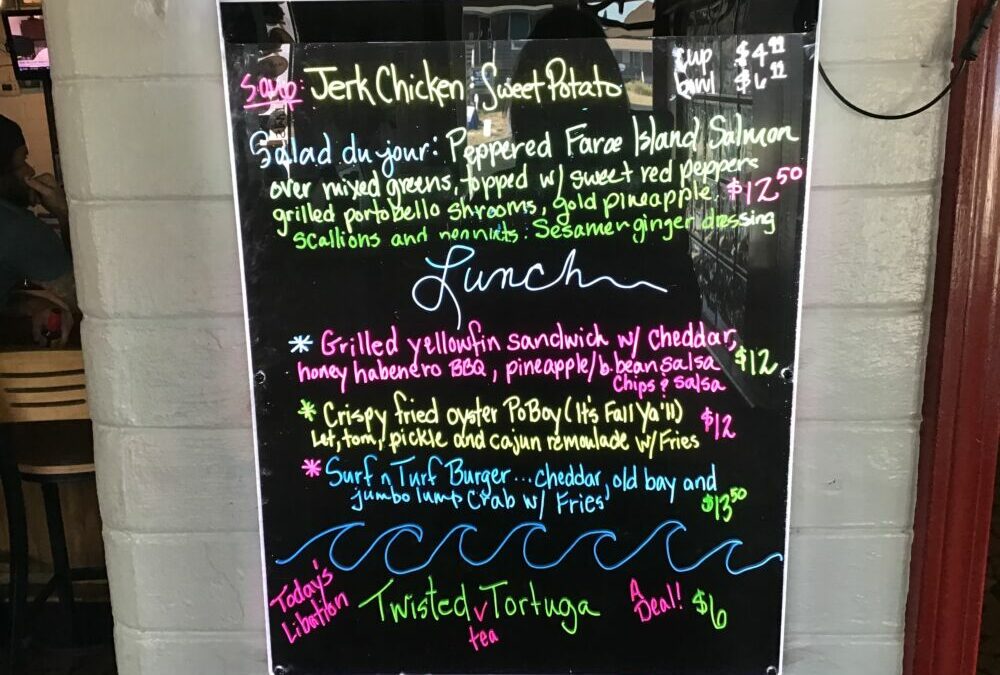 Soup: Jerk Chicken Sweet Potato
cup $4.99
bowl $6.99
Salad du jour: Peppered Faroe Island Salmon
over mixed greens, topped w/ sweet red peppers
grilled portobello shrooms, gold pineapple, $12.50
scallions and peanuts. Sesame ginger dressing
Lunch
* Grilled yellowfin sandwich w/ cheddar,
honey habenero BBQ, pineapple/b.bean salsa $12
Chips & salsa
* Crispy fried oyster PoBoy (It's Fall Ya'll) $12
Let, tom, pickle and cajun remoulade w/ Fries
* Surf n Turf Burger... cheddar, old bay and
jumbo lump crab w/ Fries $13.50
Today's
Libation
Twisted Tortuga
tea
A
Deal! $6